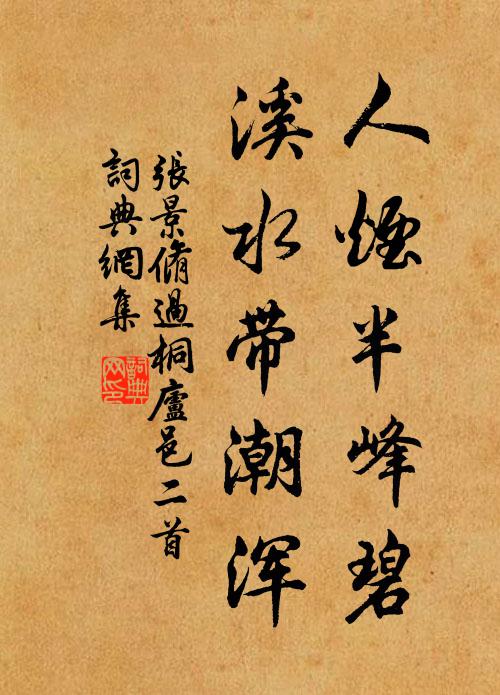 人煙半峰碧
溪水带潮浑
張景脩過桐廬邑二首
詞典網集
詞典网印